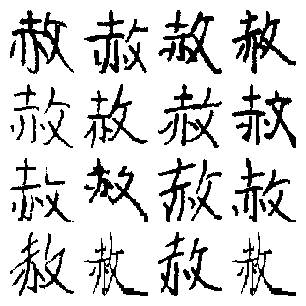 赦赦赦赦
赦赦赦赦
赦赦赦赦
赦赦赦赦